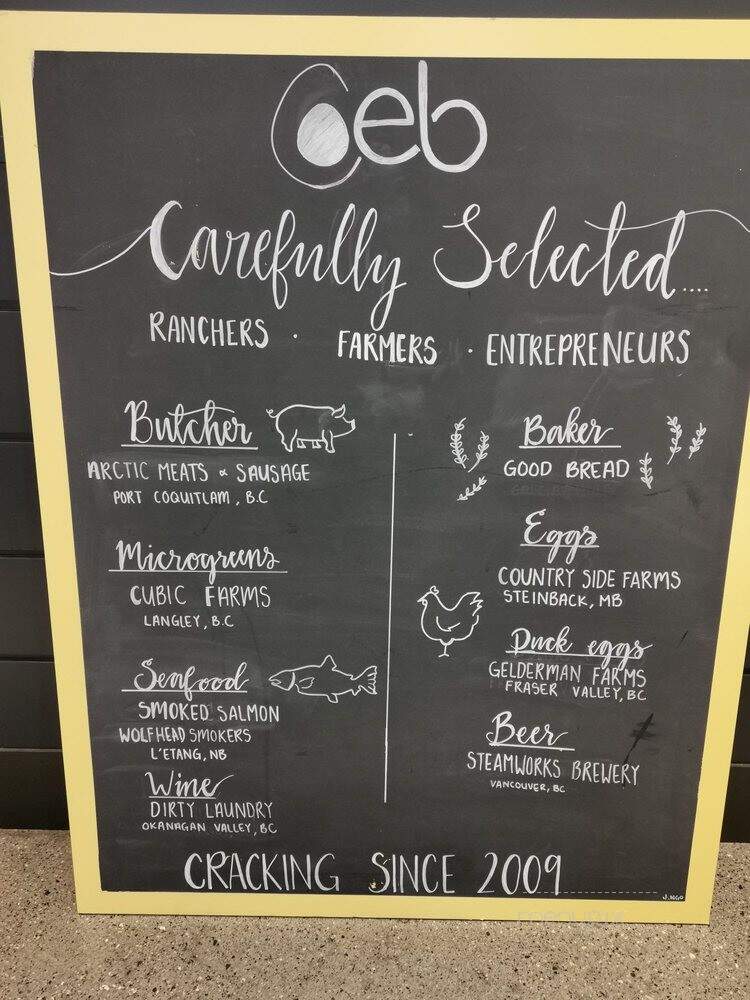 Oeb
Carefully Selected....
RANCHERS · FARMERS · ENTREPRENEURS
Butcher
ARCTIC MEATS & SAUSAGE
PORT COQUITLAM, B.C
Microgreens
CUBIC FARMS
LANGLEY, B.C
Seafood
SMOKED SALMON
WOLFHEAD SMOKERS
L'ETANG, NB
Wine
DIRTY LAUNDRY
OKANAGAN VALLEY, BC
Baker
GOOD BREAD
Eggs
COUNTRY SIDE FARMS
STEINBACK, MB
Duck eggs
GELDERMAN FARMS
FRASER VALLEY, BC
Beer
STEAMWORKS BREWERY
VANCOUVER, BC
CRACKING SINCE 2009
J.NGO